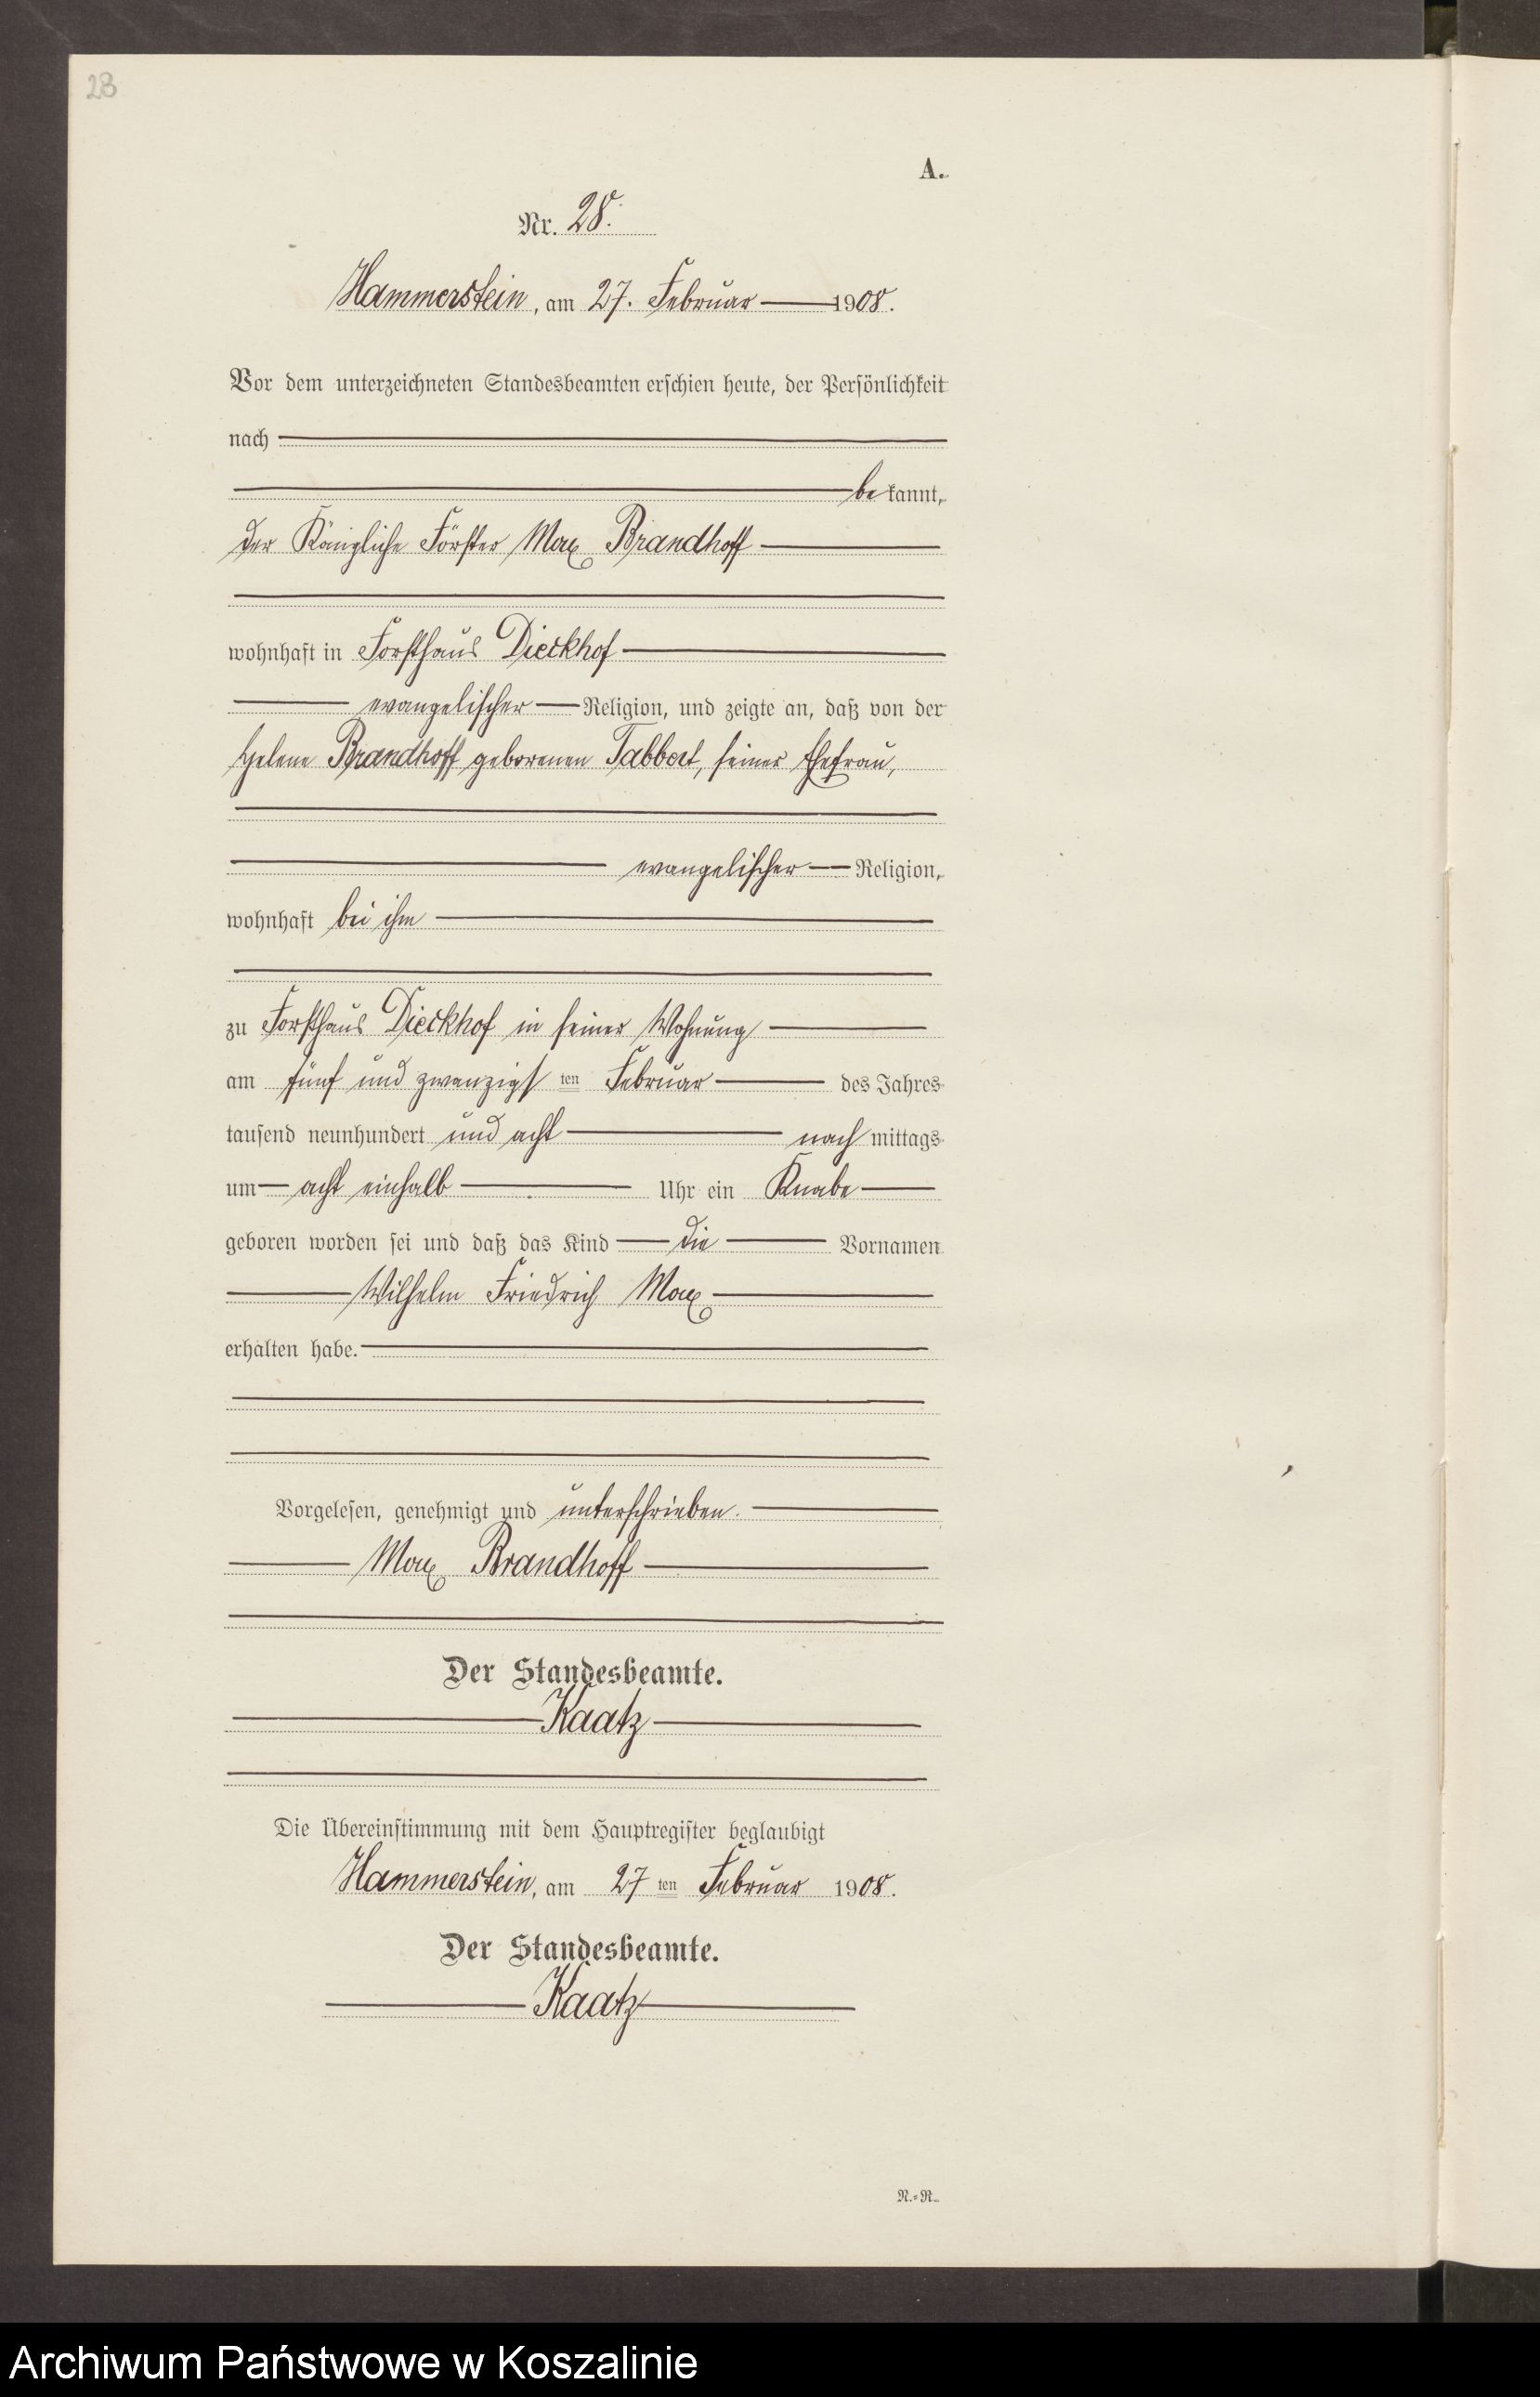 28
A.
Nr. 28.
Hammerstein, am 27. Februar 1908.
Vor dem unterzeichneten Standesbeamten erschien heute, der Persönlichkeit
nach
bekannt,
der Königliche Förster Max Brandhoff
wohnhaft in Forsthaus Dieckhof
evangelischer Religion, und zeigte an, daß von der
Helene Brandhoff geborenen Tabbert, seiner Ehefrau,
evangelischer Religion,
wohnhaft bei ihm
zu Forsthaus Dieckhof in seiner Wohnung
am fünf und zwanzigsten Februar des Jahres
tausend neunhundert und acht nachmittags
um acht einhalb Uhr ein Knabe
geboren worden sei und daß das Kind die Vornamen
Wilhelm Friedrich Max
erhalten habe.
Vorgelesen, genehmigt und unterschrieben.
Max Brandhoff
Der Standesbeamte.
Kaatz
Die Übereinstimmung mit dem Hauptregister beglaubigt
Hammerstein, am 27ten Februar 1908.
Der Standesbeamte.
Kaatz
N.=R.
Archiwum Państwowe w Koszalinie